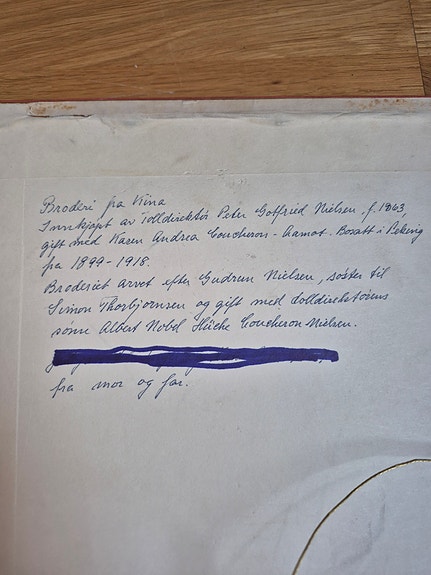 Broderi fra Kina
Innkjøpt av Tolldirektør Peter Gotfried Nielsen, f. 1863,
gift med Karen Andrea Coucheron-Aamot. Bosatt i Peking
fra 1899-1918.
Broderiet arvet efter Gudrun Nielsen, søster til
Simon Thorbjørnsen og gift med tolldirektørens
sønn Albert Nobel Hücke Coucheron-Nielsen.
fra mor og far.